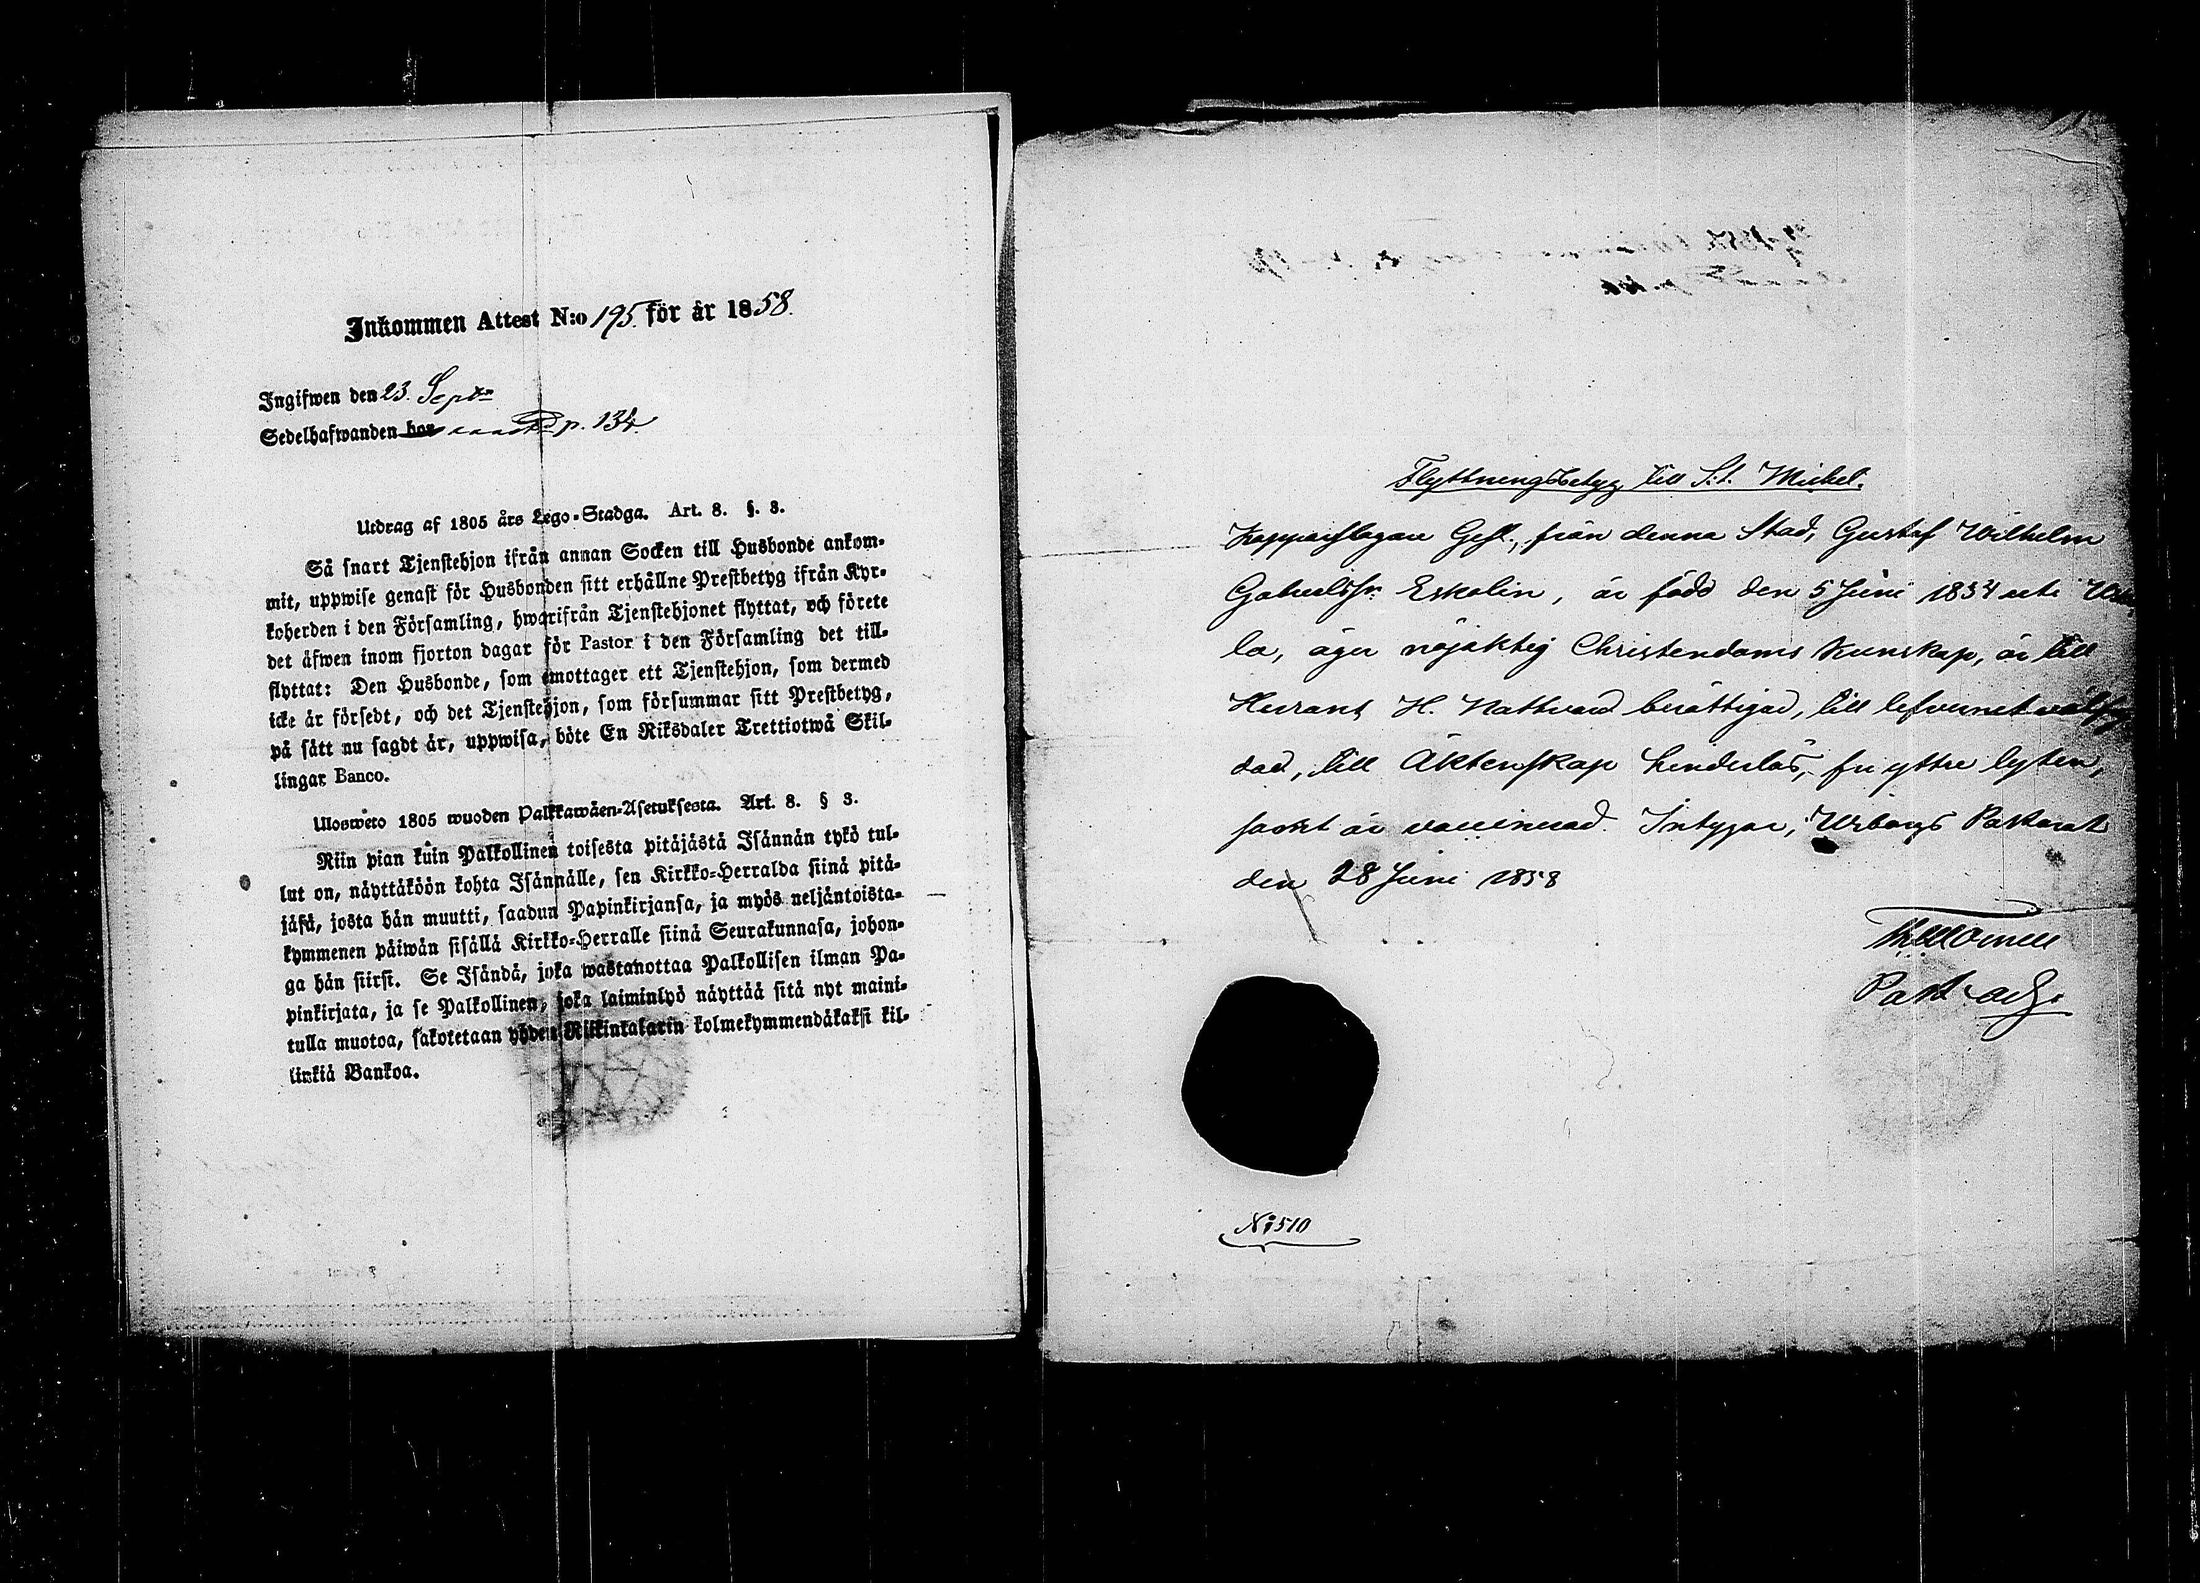 Inkommen Attest N:o 195. för år 1858.
Ingifwen den 23. Sept:
Sedelhafwanden hos p. 134.
Utdrag af 1805 års Lego-Stadga. Art. 8. §. 3.
Så snart Tjenstehjon ifrån annan Socken till Husbonde ankom-
mit, uppwise genast för Husbonden sitt erhållne Prestbetyg ifrån Kyr-
koherden i den Församling, hwarifrån Tjenstehjonet flyttat, och förete
det äfwen inom fjorton dagar för Pastor i den Församling det till-
flyttat: Den Husbonde, som emottager ett Tjenstehjon, som dermed
icke är försedt, och det Tjenstehjon, som försummar sitt Prestbetyg,
på sätt nu sagdt är, uppwisa, böte En Riksdaler Trettiotwå Skil-
lingar Banco.
Ulosweto 1805 wuoden Palkkawäen-Asetuksesta. Art. 8. § 3.
Niin pian kuin Palkollinen toisesta pitäjästä Isännän tykö tul-
lut on, näyttäköön kohta Isännälle, sen Kirkko-Herralda siinä pitä-
jäsä, josta hän muutti, saadun Papinkirjansa, ja myös neljäntoista-
kymmenen päiwän sisällä Kirkko-Herralle siinä Seurakunnasa, johon-
ga hän siirsi. Se Isändä, joka wastanottaa Palkollisen ilman Pa-
pinkirjata, ja se Palkollinen, joka laiminlyö näyttää sitä nyt maini-
tulla muotoa, sakotetaan yhden Riikintalarin kolmekymmendäkaksi kil-
linkiä Bankoa.
Flyttningsbetyg till S:t Michel.
Kopparslagare Gesl., från denna Stad, Gustaf Wilhelm
Gabrielss:n Eskolin, är född den 5 Juni 1834 uti
la, äger nöjaktig Christendoms kunskap, är till
Herrans H. Nattvard berättigad, till lefvernet välfrej
dad, till Äktenskap hinderlös, fri yttre lyten,
samt är vaccinerad. Intygar, Wiborgs Pastorat
den 28 Juni 1858
Past. adj.
N:o 510